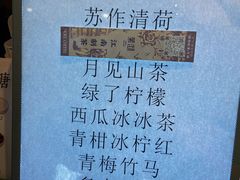 苏作清荷
月见山茶
绿了柠檬
西瓜冰冰茶
青柑冰柠红
青梅竹马